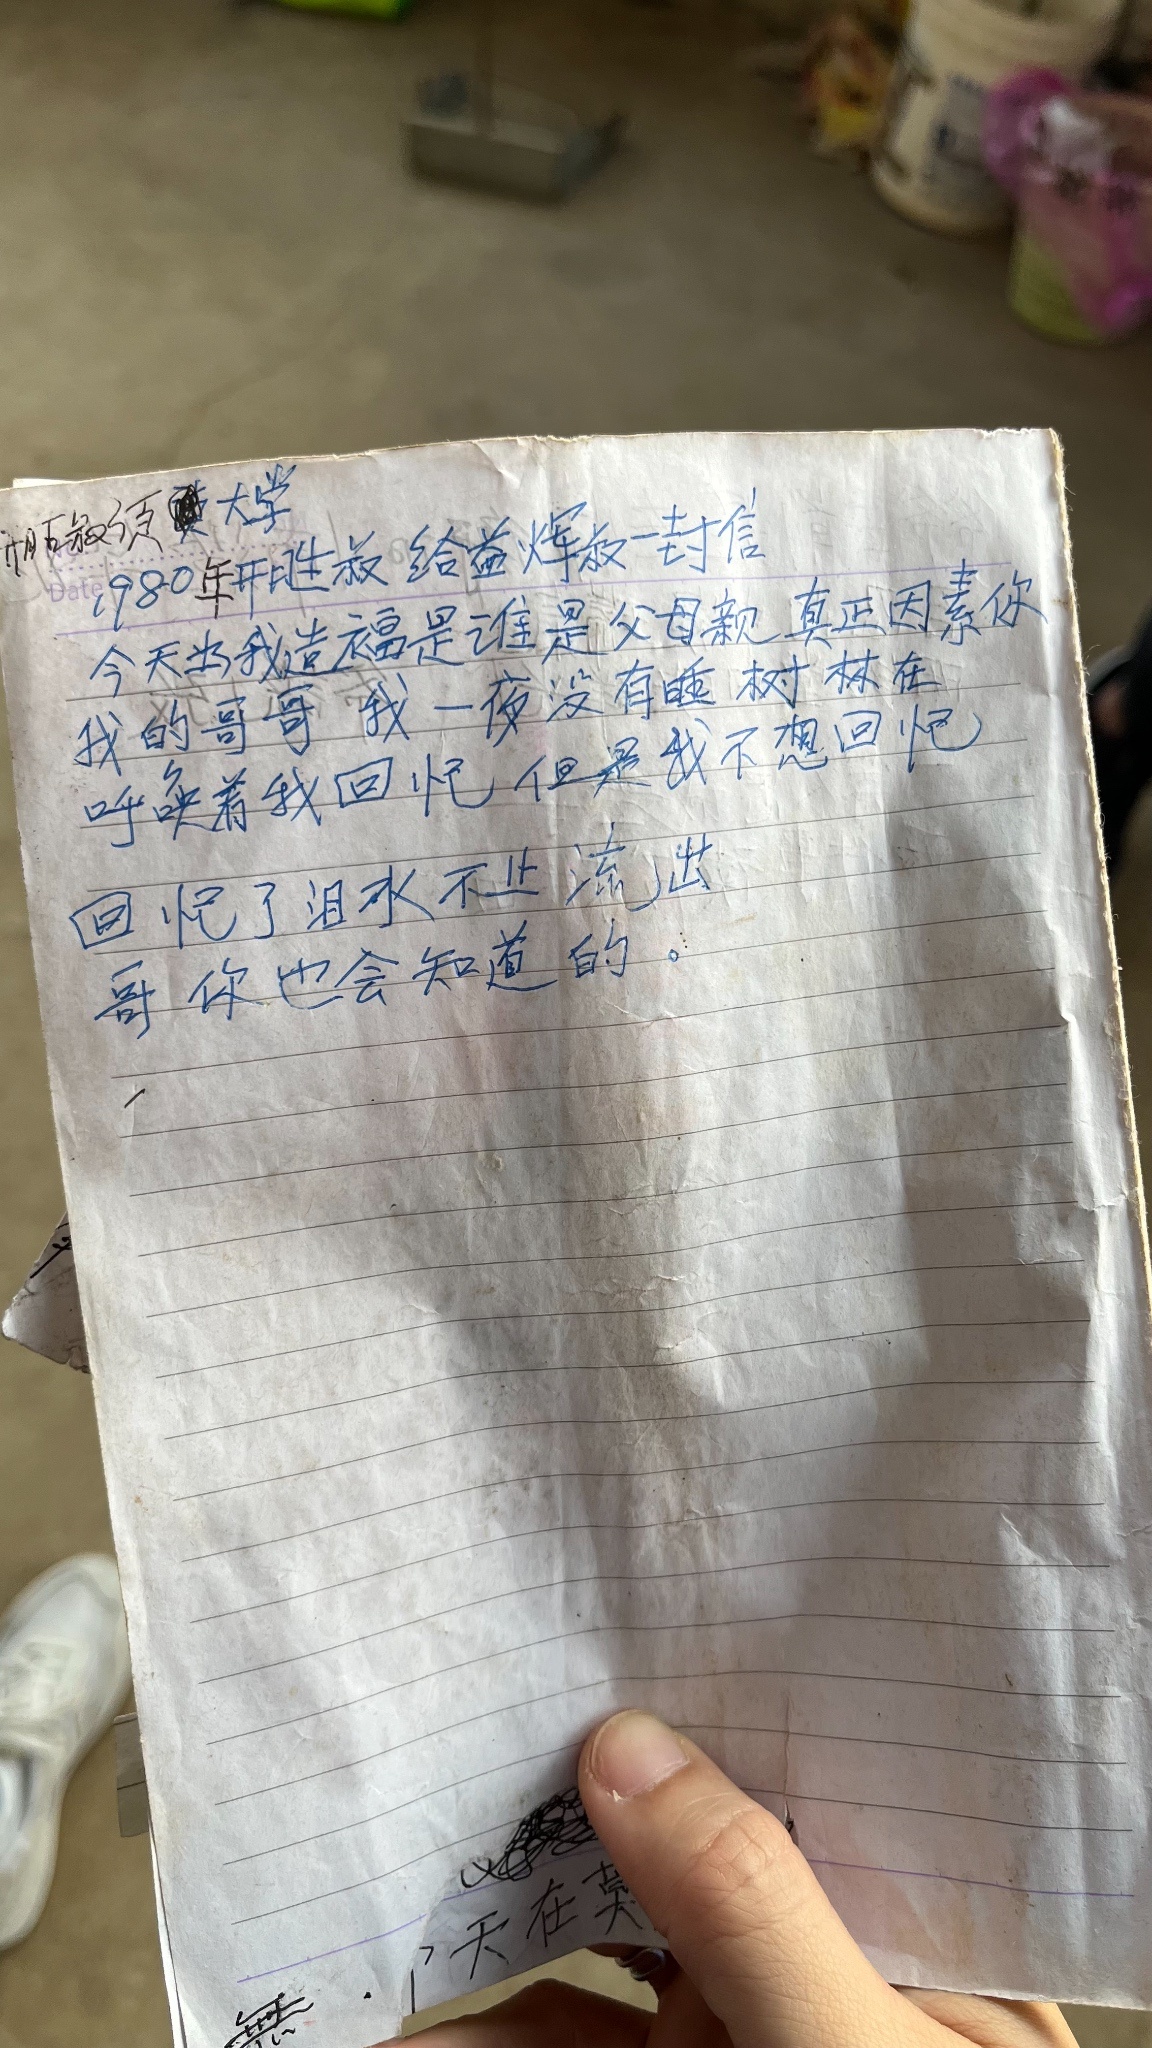 叔须大学
Date
1980年开胜叔给益辉叔一封信
今天当我造福是谁是父母亲真正因素你
我的哥哥 我一夜没有睡 树林在
呼唤着我回忆 但是我不想回忆
回忆了泪水不止流出
哥你也会知道的。
天在莫